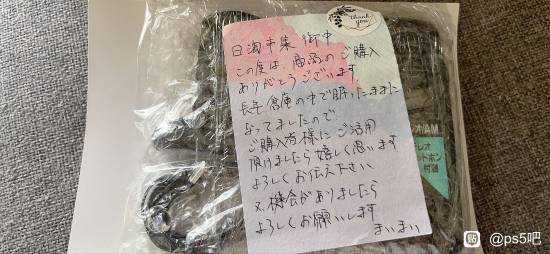 thank you
日淘市集 御中
この度は、商品のご購入
ありがとうございます。
長年倉庫の中で眠ったままに
なってましたので
ご購入者様にご活用
頂けましたら嬉しく思います
よろしくお伝え下さい
又、機会がありましたら
よろしくお願いします
まいまい
オ/AM
レオ
ットホン
付詞
@ps5吧